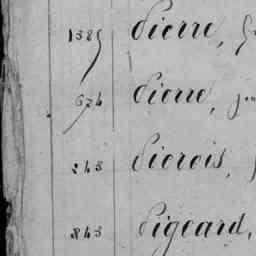 1385 Pierre,
674 Pierre,
243 Pierois,
843 Pigeard,